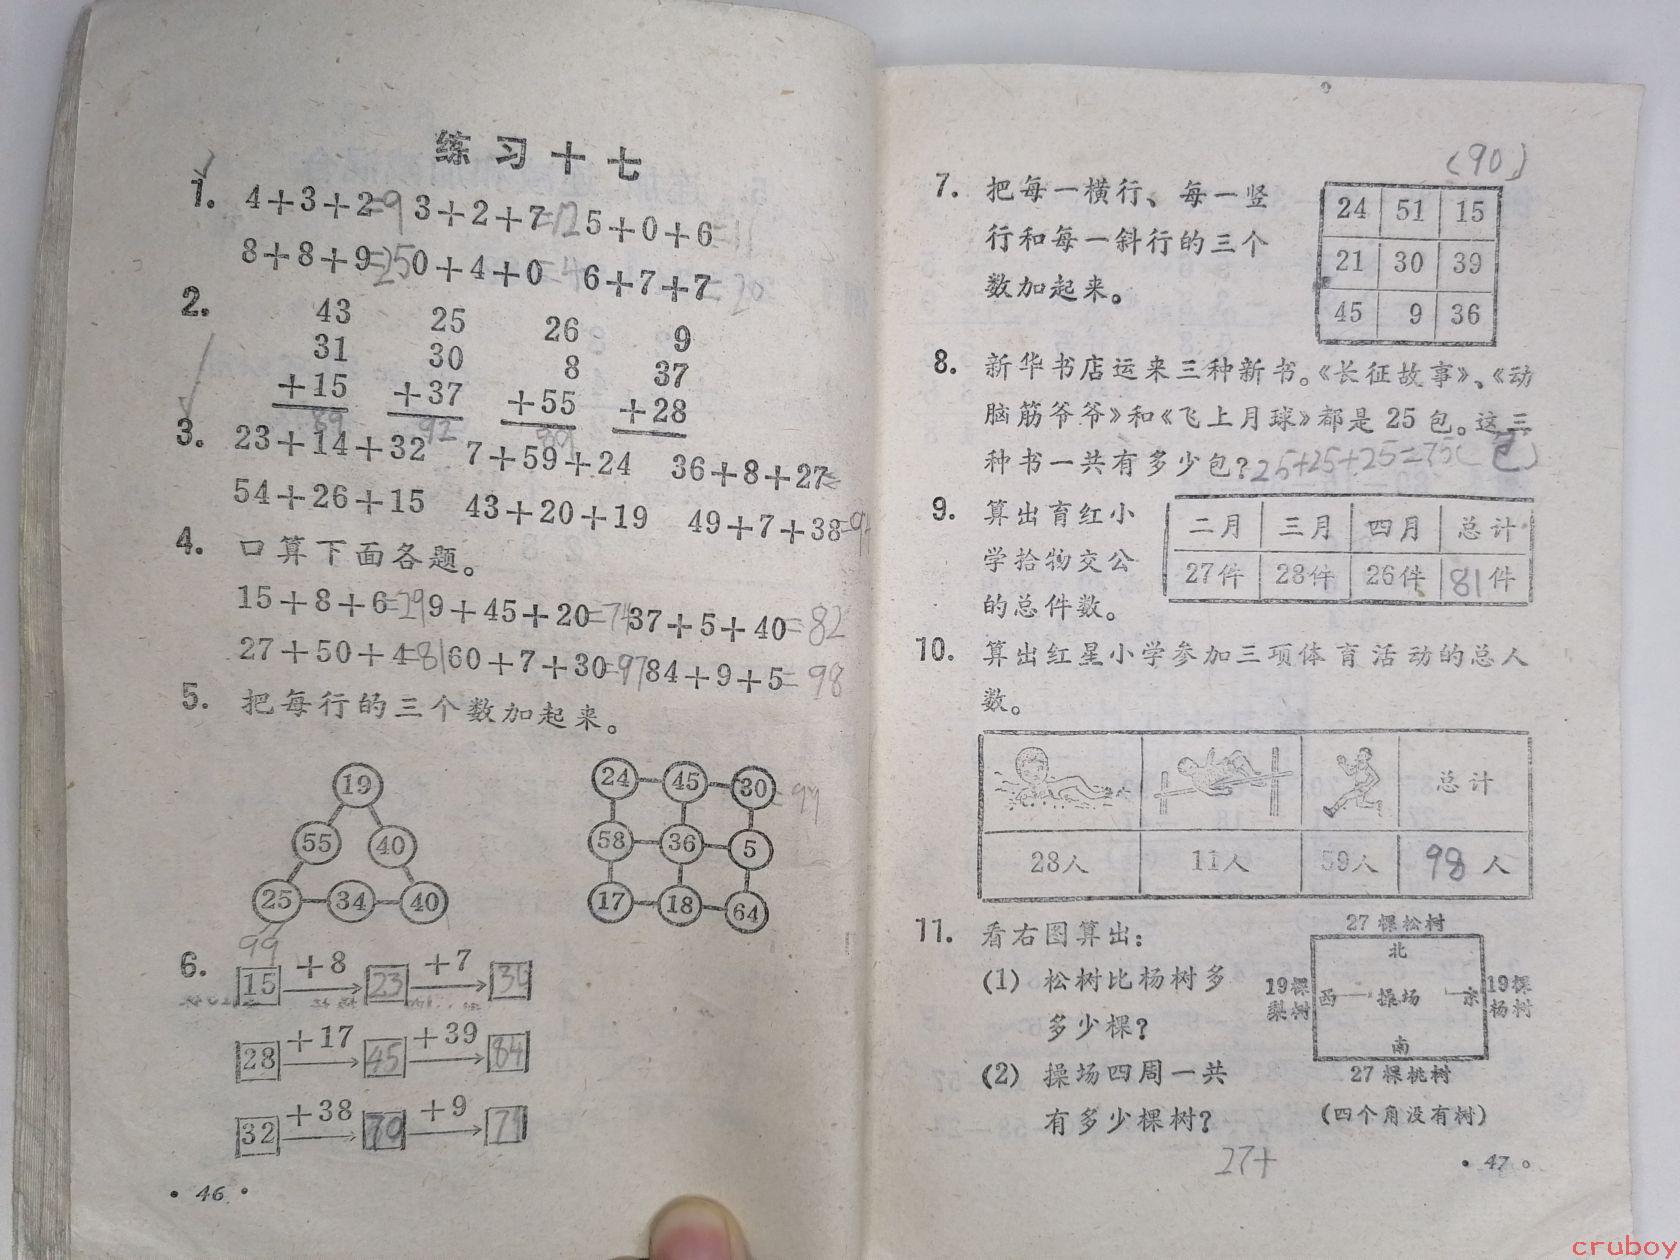 练习十七
1. 4+3+2=9 3+2+7=12 5+0+6=11
8+8+9=25 0+4+0=4 6+7+7=20
2. 43 25 26 9
31 30 8 37
+15 +37 +55 +28
89 92 89
3. 23+14+32 7+59+24 36+8+27=
54+26+15 43+20+19 49+7+38=94
4. 口算下面各题。
15+8+6=29 9+45+20=74 37+5+40=82
27+50+4=81 60+7+30=97 84+9+5=98
5. 把每行的三个数加起来。
19
55 40
25 34 40
99
24 45 30 =99
58 36 5
17 18 64
6. 15 +8 23 +7 30
28 +17 45 +39 84
32 +38 70 +9 79
• 46 •
(90)
7. 把每一横行、每一竖
行和每一斜行的三个
数加起来。
24 51 15
21 30 39
45 9 36
8. 新华书店运来三种新书。《长征故事》、《动
脑筋爷爷》和《飞上月球》都是 25 包。这三
种书一共有多少包?25+25+25=75(包)
9. 算出育红小
学拾物交公
的总件数。
二月 三月 四月 总计
27件 28件 26件 81件
10. 算出红星小学参加三项体育活动的总人
数。
总计
28人 11人 59人 98人
11. 看右图算出:
(1) 松树比杨树多
多少棵?
(2) 操场四周一共
有多少棵树?
27+
27 棵松树
北
19棵
梨树
西 操场 东
19棵
杨树
南
27 棵桃树
(四个角没有树)
• 47 •
cruboy